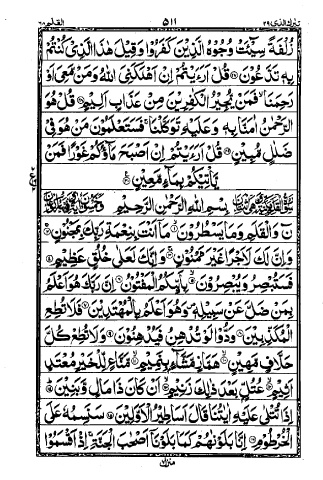 تبٰرك الذی ٢٩ ٥١١ القلم ٦٨
زُلْفَةً سِيْٓـَٔتْ وُجُوْهُ الَّذِيْنَ كَفَرُوْا وَقِيْلَ هٰذَا الَّذِيْ كُنْتُمْ
بِهٖ تَدَّعُوْنَ ۝ قُلْ اَرَءَيْتُمْ اِنْ اَهْلَكَنِيَ اللّٰهُ وَمَنْ مَّعِيَ اَوْ
رَحِمَنَا ۙ فَمَنْ يُّجِيْرُ الْكٰفِرِيْنَ مِنْ عَذَابٍ اَلِيْمٍ ۝ قُلْ هُوَ
الرَّحْمٰنُ اٰمَنَّا بِهٖ وَعَلَيْهِ تَوَكَّلْنَا ۚ فَسَتَعْلَمُوْنَ مَنْ هُوَ فِيْ
ضَلٰلٍ مُّبِيْنٍ ۝ قُلْ اَرَءَيْتُمْ اِنْ اَصْبَحَ مَآؤُكُمْ غَوْرًا فَمَنْ
يَّاْتِيْكُمْ بِمَآءٍ مَّعِيْنٍ ۝
بِسْمِ اللّٰهِ الرَّحْمٰنِ الرَّحِيْمِ
نٓ وَالْقَلَمِ وَمَا يَسْطُرُوْنَ ۝ مَآ اَنْتَ بِنِعْمَةِ رَبِّكَ بِمَجْنُوْنٍ ۝
وَاِنَّ لَكَ لَاَجْرًا غَيْرَ مَمْنُوْنٍ ۝ وَاِنَّكَ لَعَلٰى خُلُقٍ عَظِيْمٍ ۝
فَسَتُبْصِرُ وَيُبْصِرُوْنَ ۝ بِاَيِّكُمُ الْمَفْتُوْنُ ۝ اِنَّ رَبَّكَ هُوَ اَعْلَمُ
بِمَنْ ضَلَّ عَنْ سَبِيْلِهٖ ۪ وَهُوَ اَعْلَمُ بِالْمُهْتَدِيْنَ ۝ فَلَا تُطِعِ
الْمُكَذِّبِيْنَ ۝ وَدُّوْا لَوْ تُدْهِنُ فَيُدْهِنُوْنَ ۝ وَلَا تُطِعْ كُلَّ
حَلَّافٍ مَّهِيْنٍ ۝ هَمَّازٍ مَّشَّآءٍ بِنَمِيْمٍ ۝ مَّنَّاعٍ لِّلْخَيْرِ مُعْتَدٍ
اَثِيْمٍ ۝ عُتُلٍّ بَعْدَ ذٰلِكَ زَنِيْمٍ ۝ اَنْ كَانَ ذَا مَالٍ وَّبَنِيْنَ ۝
اِذَا تُتْلٰى عَلَيْهِ اٰيٰتُنَا قَالَ اَسَاطِيْرُ الْاَوَّلِيْنَ ۝ سَنَسِمُهٗ عَلَى
الْخُرْطُوْمِ ۝ اِنَّا بَلَوْنٰهُمْ كَمَا بَلَوْنَآ اَصْحٰبَ الْجَنَّةِ ۚ اِذْ اَقْسَمُوْا
منزل